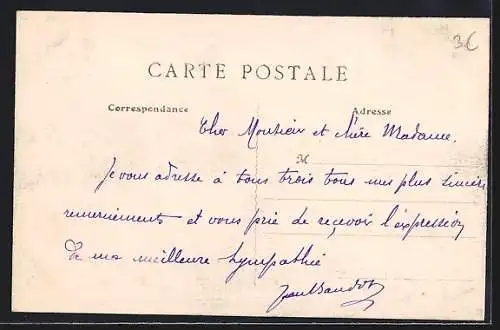 3€
CARTE POSTALE
Correspondance
Adresse
Cher Monsieur et chère Madame.
3€
Je vous adresse à tous trois tous mes plus sincères
remerciements et vous prie de recevoir l'expression
de ma meilleure sympathie